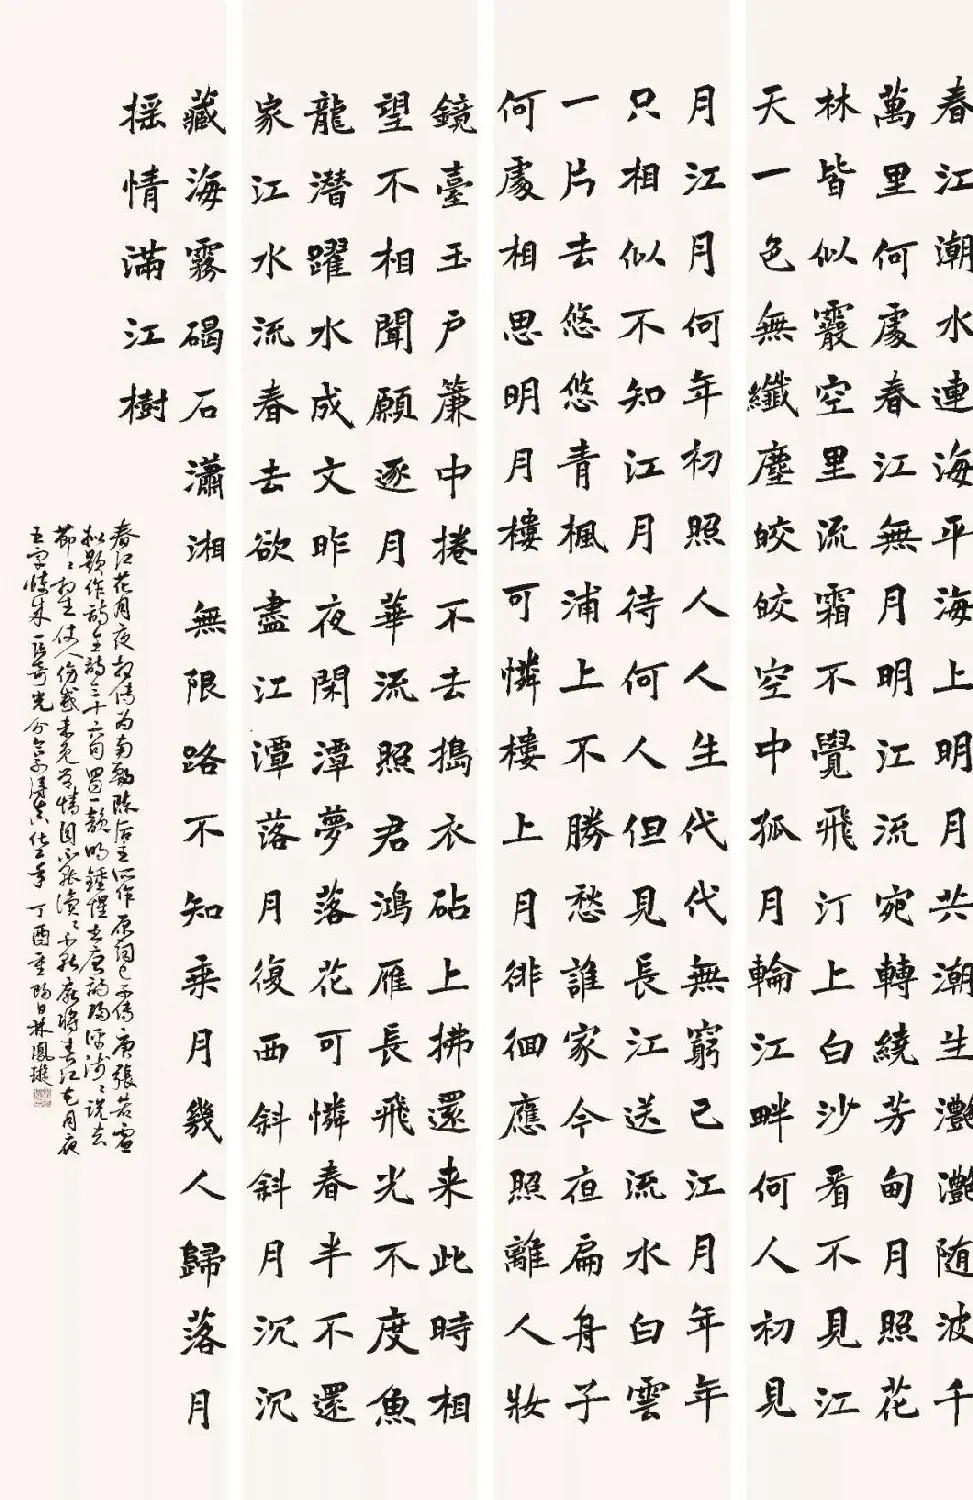 春江潮水連海平海上明月共潮生灔灔随波千
萬里何處春江無月明江流宛轉繞芳甸月照花
林皆似霰空里流霜不覺飛汀上白沙看不見江
天一色無纖塵皎皎空中孤月輪江畔何人初見
月江月何年初照人人生代代無窮已江月年年
只相似不知江月待何人但見長江送流水白雲
一片去悠悠青楓浦上不勝愁誰家今夜扁舟子
何處相思明月樓可憐樓上月徘徊應照離人妝
鏡臺玉户簾中捲不去搗衣砧上拂還来此時相
望不相聞願逐月華流照君鴻雁長飛光不度魚
龍潛躍水成文昨夜閑潭夢落花可憐春半不還
家江水流春去欲盡江潭落月復西斜斜月沉沉
藏海霧碣石瀟湘無限路不知乘月幾人歸落月
摇情滿江樹
春江花月夜相傳為南朝陳後主所作原詞已不傳唐張若虚
拟題作詩全詩三十六句
使人傷感未免有情春江花月夜
五字丁酉重陽日林鳳璇